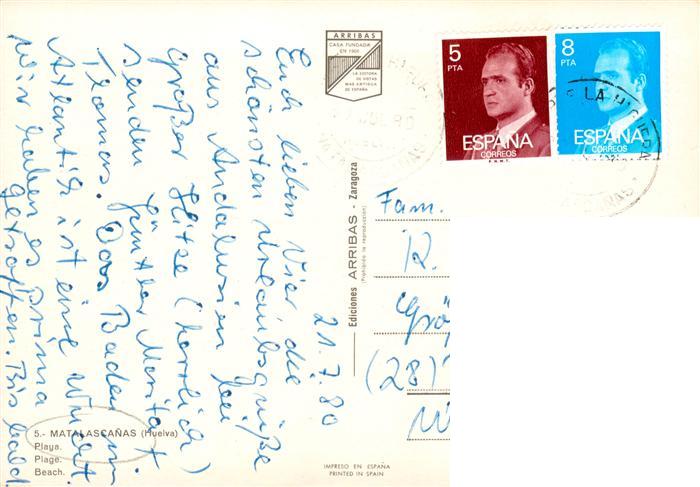 21.7.80
Euch lieben Vier die
schönsten Urlaubsgrüße
aus Andalusien bei
großer Hitze (herrlich)
senden Günter Monita +
Thomas. Das Baden im
Atlantik ist eine Wucht.
Wir haben es prima
getroffen. Bis bald.
5.- MATALASCAÑAS (Huelva)
Playa.
Plage.
Beach.
ARRIBAS
CASA FUNDADA
EN 1900
LA EDITORA
DE VISTAS
MAS ANTIGUA
DE ESPAÑA
Ediciones ARRIBAS - Zaragoza
(Prohibida la reproducción)
IMPRESO EN ESPAÑA
PRINTED IN SPAIN
5
PTA
ESPAÑA
CORREOS
8
PTA
ESPAÑA
CORREOS
LA HIGUERA
Fam.
R.
(28)